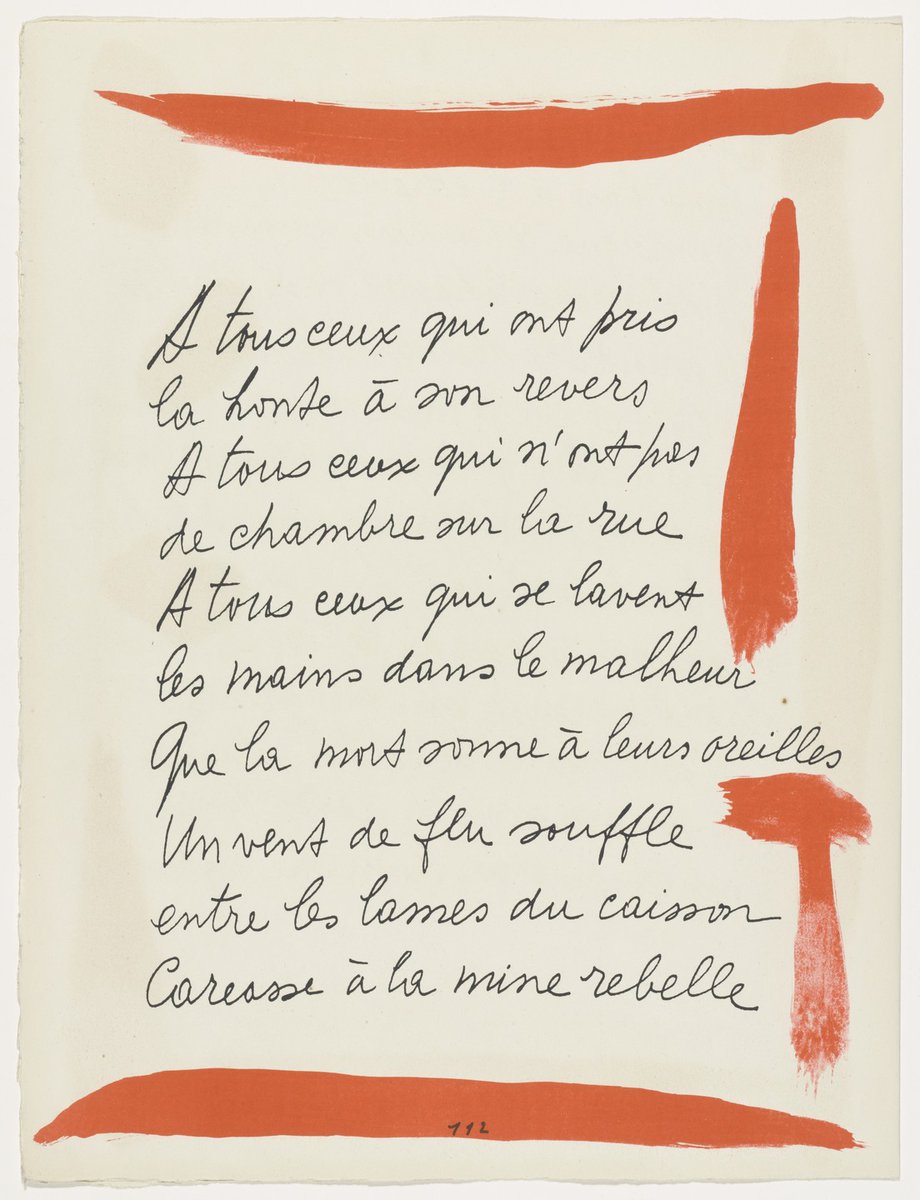 A tous ceux qui ont pris
la honte à son revers
A tous ceux qui n'ont pas
de chambre sur la rue
A tous ceux qui se lavent
les mains dans le malheur
Que la mort sonne à leurs oreilles
Un vent de feu souffle
entre les lames du caisson
Carcasse à la mine rebelle
112